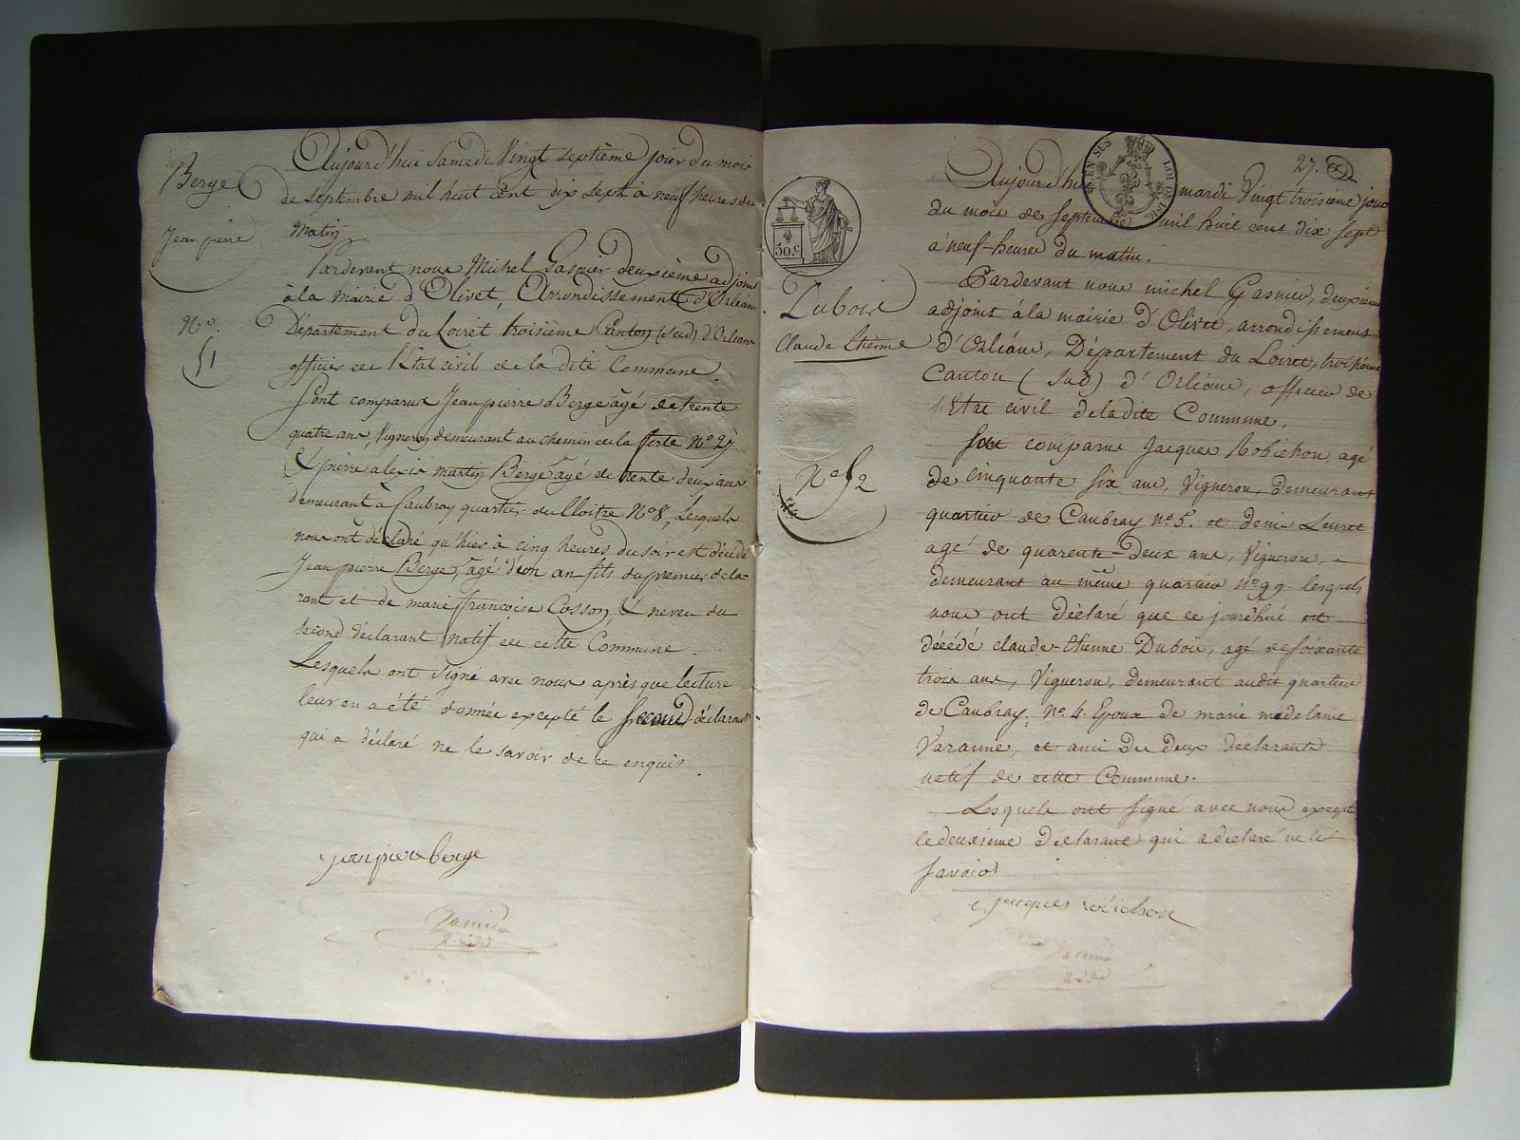 Berge
Jean pierre
N.o
51
Aujourd'hui Samedi Vingt Septième jour du mois
de Septembre mil huit cent dix Sept à neuf heures du
Matin
Pardevant nous Michel Gasnier deuxième adjoint
à la Mairie d'Olivet, Arrondissement d'Orléans
Département du Loiret, troisième Canton (Sud) d'Orléans
officier de l'Etat civil de la dite Commune
Sont comparus Jean pierre Berge âgé de trente
quatre ans, Vigneron demeurant au chemin de la ferté N.o 29
Et pierre alexis martin Berge âgé de trente deux ans
demeurant a Caubray quartier du Cloitre N.o 8, Lesquels
nous ont déclaré qu'hier à cinq heures du soir est décédé
Jean pierre Berge, âgé d'un an fils du premier décla-
rant et de marie françoise Cosson, & neveu du
Second déclarant natif de cette Commune.
Lesquels ont Signé avec nous après que lecture
leur en a été donnée excepté le Second déclarant
qui a déclaré ne le savoir de ce enquis.
jean pierre berge
27.
EN SUS
30.c
Dubois
Claude Etienne
N.o 52
Aujourd'hui mardi Vingt troisieme jour
du mois de Septembre mil huit cent dix Sept
à neuf heures du matin.
Pardevant nous michel Gasnier, deuxieme
adjoint à la mairie d'Olivet, arrondissement
d'Orléans, Département du Loiret, troisieme
Canton (Sud) d'Orléans, officier de
l'Etat civil de ladite Commune.
Sont comparus Jacques Robichon, agé
de Cinquante Six ans, Vigneron, demeurant
quartier de Caubray n.o 5. et denis Leuret
agé de quarente-Deux ans, Vigneron,
demeurant au même quartier N.o 99 lesquels
nous ont déclaré que ce jourd'hui est
décédé claude-Etienne Dubois, agé de Soixante
trois ans, Vigneron, demeurant audit quartier
de Caubray, n.o 4. Epoux de marie madelaine
Varanne, et ami des deux declarants
natif de cette Commune.
Lesquels ont Signé avec nous excepté
le deuxieme Declarant qui a déclaré ne le
Savoir
jacques robichon